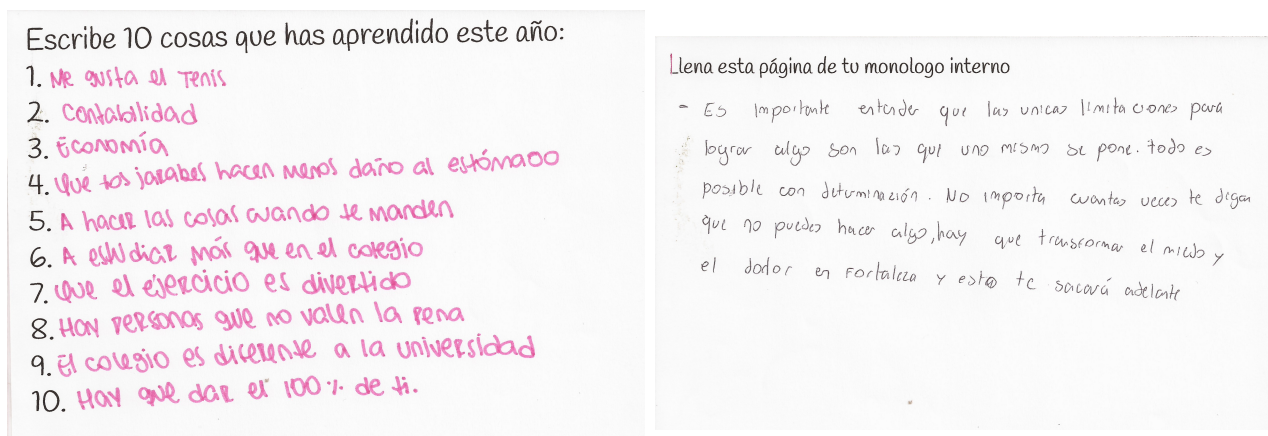 Escribe 10 cosas que has aprendido este año:
1. Me gusta el Tenis
2. Contabilidad
3. Economía
4. Que los jarabes hacen menos daño al estómago
5. A hacer las cosas cuando te manden
6. A estudiar más que en el colegio
7. Que el ejercicio es divertido
8. Hay personas que no valen la pena
9. El colegio es diferente a la universidad
10. Hay que dar el 100% de ti.
Llena esta página de tu monologo interno
- Es importante entender que las unicas limitaciones para
lograr algo son las que uno mismo se pone. todo es
posible con determinación. No importa cuantas veces te digan
que no puedes hacer algo, hay que transformar el miedo y
el dolor en fortaleza y esto te sacará adelante